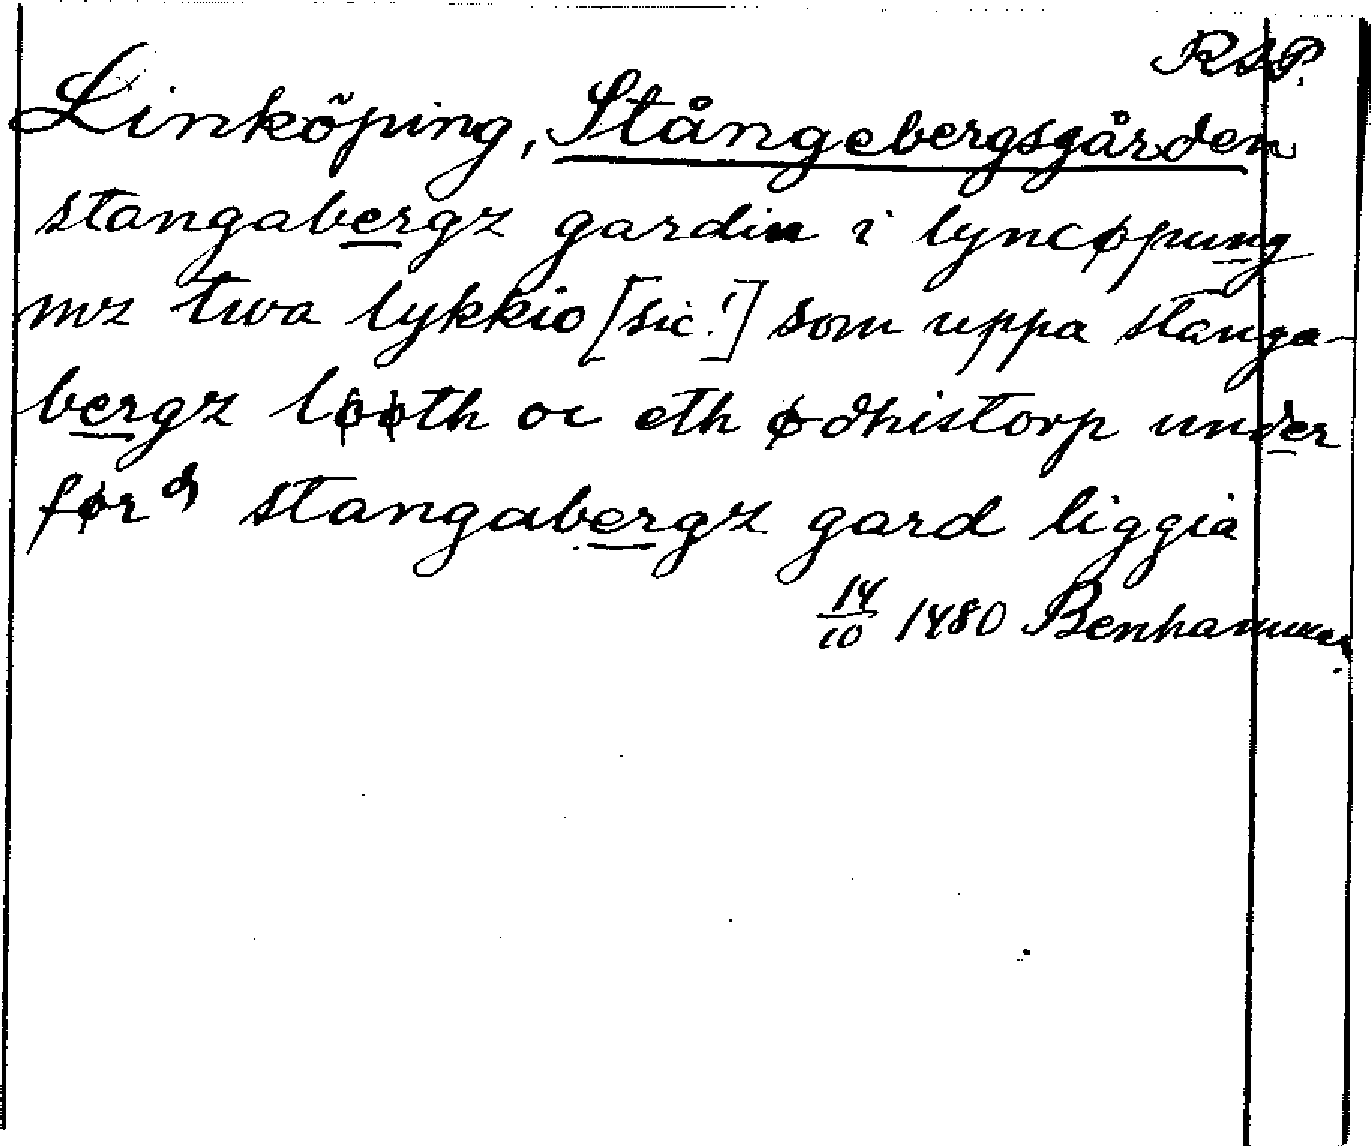 RAP.
Linköping, Stångebergsgården
stangabergz gardin i lyncøpung
mz twa lykkio [sic!] som uppa stanga-
bergz løøth oc eth ødhistorp under
førᵈ stangabergz gard liggia
14/10 1480 Benhammar